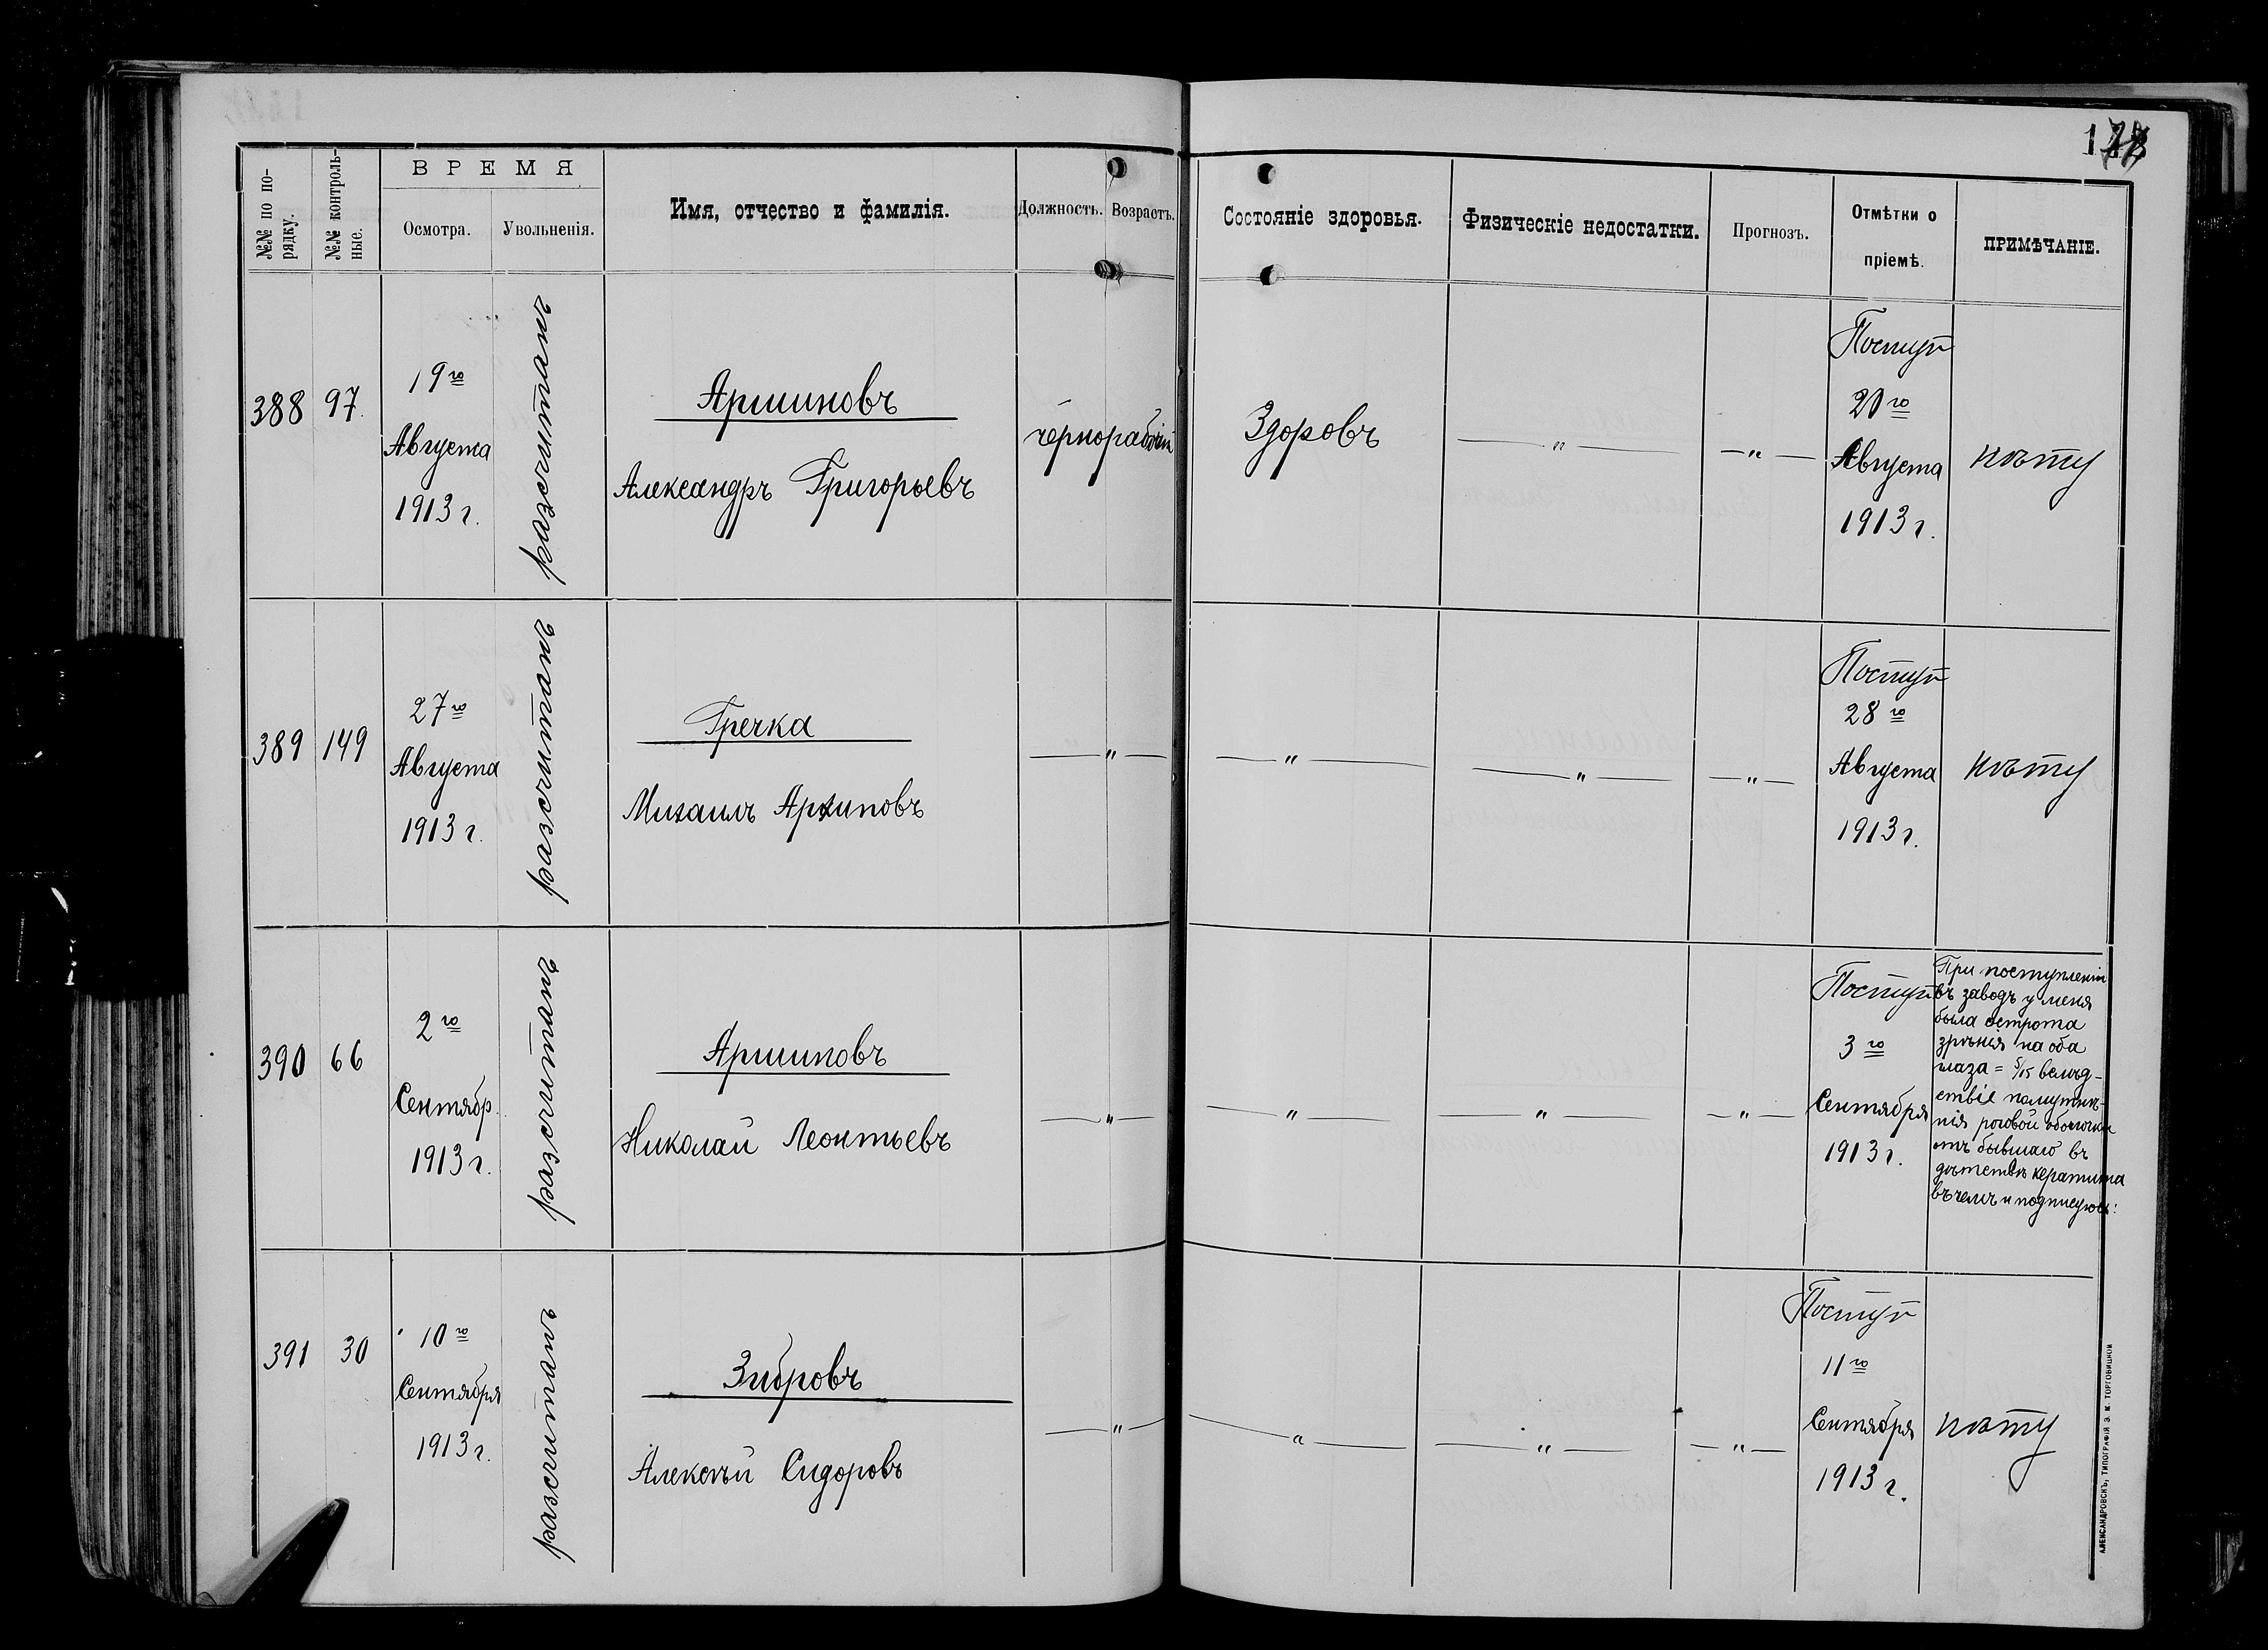 №№ по по-
рядку.
№№ контроль-
ные.
ВРЕМЯ
Осмотра.
Увольненія.
Имя, отчество и фамилія.
Должность.
Возрастъ.
Состояніе здоровья.
Физическіе недостатки.
Прогнозъ.
Отмѣтки о
пріемѣ.
ПРИМѢЧАНІЕ.
388
97.
19го
Августа
1913 г.
разсчитанъ
Аршиновъ
Александръ Григорьевъ
чернорабочій
Здоровъ
— " —
— " —
Поступ
20го
Августа
1913 г.
нѣту
389
149
27го
Августа
1913 г.
разсчитанъ
Гречка
Михаилъ Архиповъ
— " —
— " —
— " —
— " —
Поступ
28го
Августа
1913 г.
нѣту
390
66
2го
Сентябр.
1913 г.
разсчитанъ
Аршиновъ
Николай Леонтьевъ
— " —
— " —
— " —
— " —
Поступ
3го
Сентября
1913 г.
При поступленіи
въ заводъ у меня
была острота
зрѣнія на оба
глаза = 5/15 вслѣд-
ствіе помутнѣ-
нія роговой оболочки
отъ бывшаго въ
дѣтствѣ кератита
въ чемъ и подписуюсь:
391
30
10го
Сентября
1913 г.
разсчитанъ
Зибровъ
Алексѣй Сидоровъ
— " —
— " —
— " —
— " —
Поступ
11го
Сентября
1913 г.
нѣту
АЛЕКСАНДРОВСКЪ, ТИПОГРАФІЯ Э. И. ТОРГОВИЦКОЙ